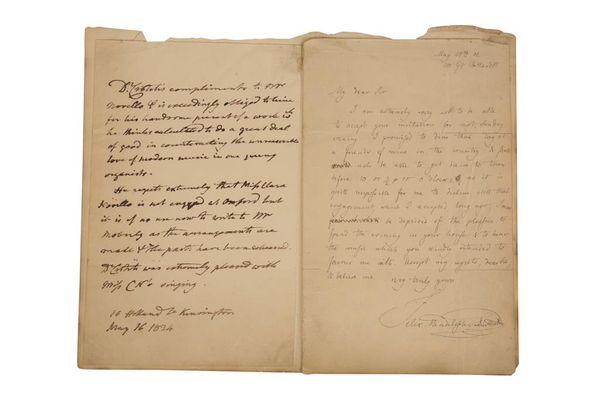 Dr Crotch's compliments to Mr
Novello & is exceedingly obliged to him
for his handsome present of a work wh
he thinks calculated to do a great deal
of good in counteracting the unreasonable
love of modern music in our young
organists.
He regrets extremely that Miss Clara
Novello is not engaged at Oxford but
it is of no use now to write to Mr
as the arrangements are
made & the parts have been
Dr Crotch was extremely pleased with
Miss CN's singing.
10 Holland St Kensington
May 16 1834
May
Gt Portland St
My dear Sir
I am extremely sorry not to be able
to accept your invitation for next Sunday
evening. I promised to dine that day at
a friends of mine in the country & shall
not be able to get back to town
before 10 or ½ p 10 o'clock & as it is
quite impossible for me to decline that
engagement which I accepted long ago, I am
deprived of the pleasure to
spend the evening in your house & to hear
the music which you kindly intended to
favour me with. Accept my regrets, dear Sir
& believe me
very truly yours
Felix Mendelssohn Bartholdy